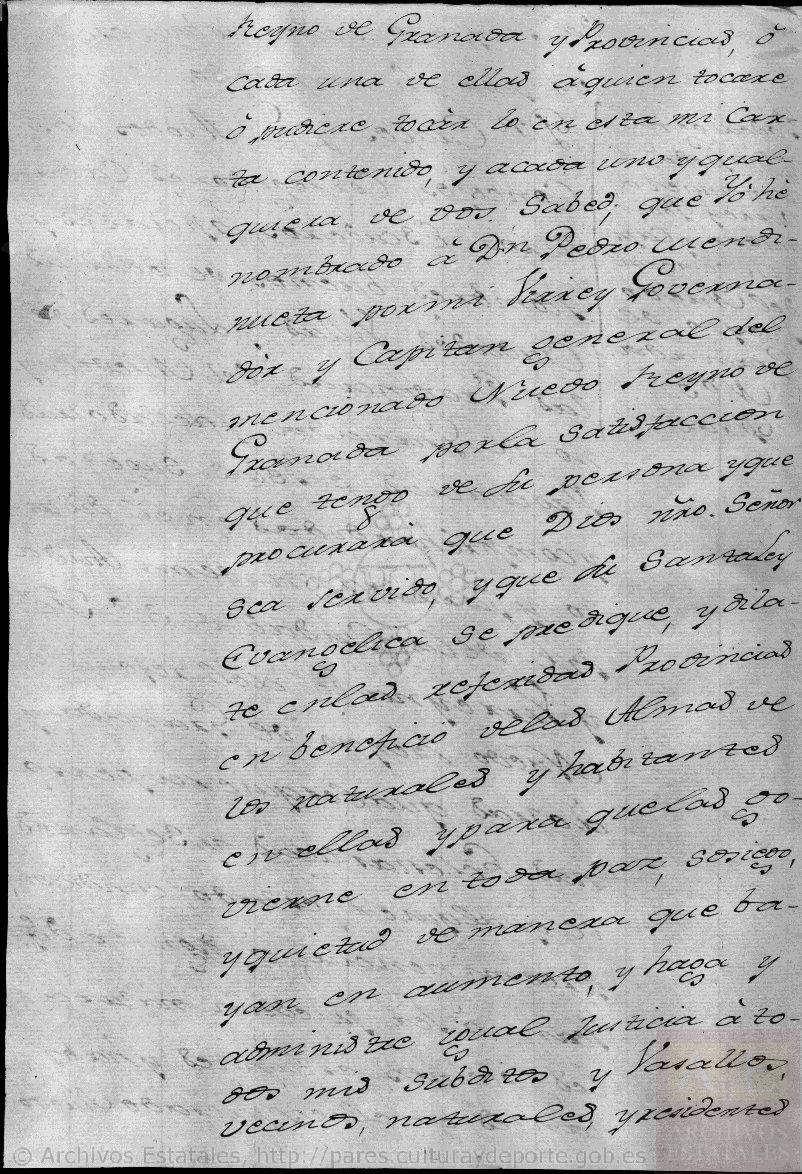 Reyno de Granada y Provincias, ó
cada una de ellas á quien tocare
ó pudiere tocàr lo en esta mi Car-
ta contenido, y acada uno y qual-
quiera de vos, Sabed, que Yó hè
nombrado á Dn Pedro Mendi-
nueta por mi Virrey Governa-
dòr y Capitan general del
mencionado Nuevo Reyno de
Granada por la satisfaccion
que tengo de su persona y que
procurarà que Dios nro. Señor
sea servido, y que su Santa Ley
Evangelica se predique, y dila-
te en las referidas Provincias
en beneficio de las Almas de
los naturales y habitantes
en ellas y para que las go-
vierne en toda paz, sosiego,
y quietud de manera que ba-
yan en aumento, y haga y
administre igual Justicia à to-
dos mis subditos y Vasallos,
vecinos, naturales, y residentes
© Archivos Estatales, http://pares.culturaydeporte.gob.es
ARCHIVOS
ESTATALES